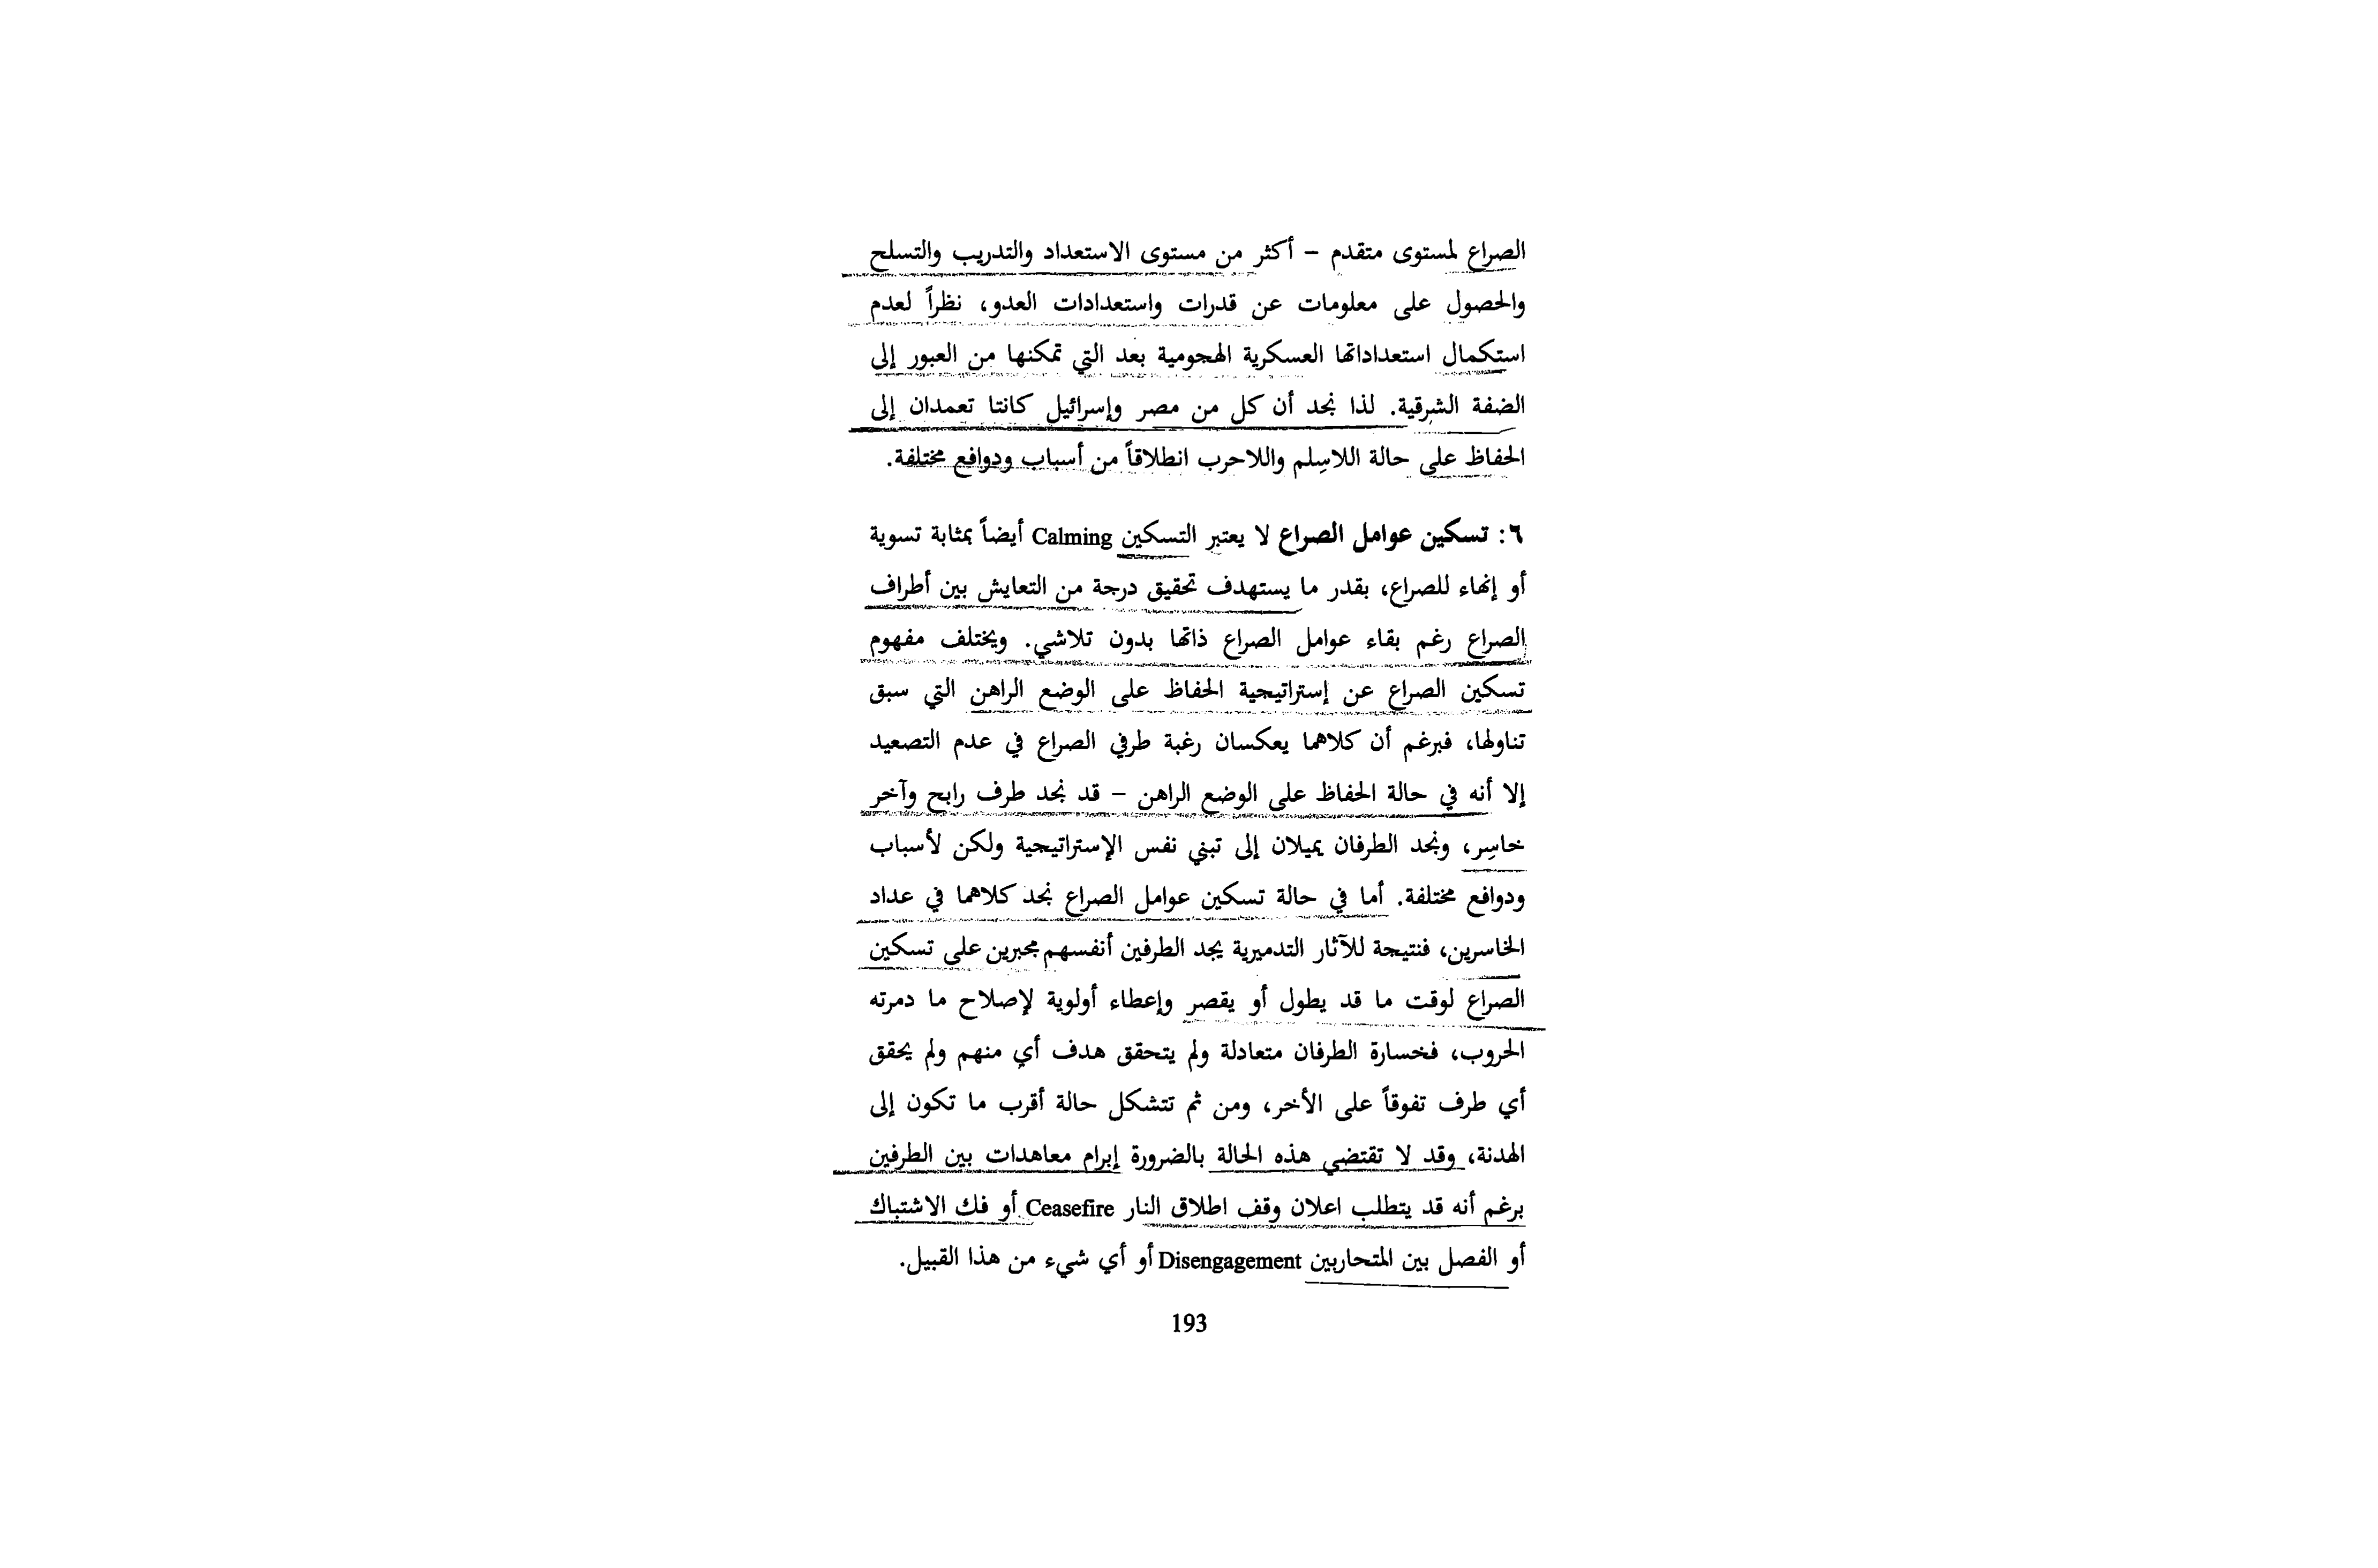 الصراع لمستوى متقدم – أكثر من مستوى الاستعداد والتدريب والتسلح
والحصول على معلومات عن قدرات واستعدادات العدو، نظراً لعدم
استكمال استعداداتها العسكرية الهجومية بعد التي تمكنها من العبور إلى
الضفة الشرقية. لذا نجد أن كل من مصر وإسرائيل كانتا تعمدان إلى
الحفاظ على حالة اللاسِلم واللاحرب انطلاقاً من أسباب ودوافع مختلفة.
٦: تسكين عوامل الصراع لا يعتبر التسكين Calming أيضاً بمثابة تسوية
أو إنهاء للصراع، بقدر ما يستهدف تحقيق درجة من التعايش بين أطراف
الصراع رغم بقاء عوامل الصراع ذاتها بدون تلاشي. ويختلف مفهوم
تسكين الصراع عن إستراتيجية الحفاظ على الوضع الراهن التي سبق
تناولها، فبرغم أن كلاهما يعكسان رغبة طرفي الصراع في عدم التصعيد
إلا أنه في حالة الحفاظ على الوضع الراهن – قد نجد طرف رابح وآخر
خاسِر، ونجد الطرفان يميلان إلى تبني نفس الإستراتيجية ولكن لأسباب
ودوافع مختلفة. أما في حالة تسكين عوامل الصراع نجد كلاهما في عداد
الخاسرين، فنتيجة للآثار التدميرية يجد الطرفين أنفسهم مجبرين على تسكين
الصراع لوقت ما قد يطول أو يقصر وإعطاء أولوية لإصلاح ما دمرته
الحروب، فخسارة الطرفان متعادلة ولم يتحقق هدف أي منهم ولم يحقق
أي طرف تفوقاً على الأخر، ومن ثم تتشكل حالة أقرب ما تكون إلى
الهدنة، وقد لا تقتضي هذه الحالة بالضرورة إبرام معاهدات بين الطرفين
برغم أنه قد يتطلب اعلان وقف اطلاق النار Ceasefire أو فك الاشتباك
أو الفصل بين المتحاربين Disengagement أو أي شيء من هذا القبيل.
193